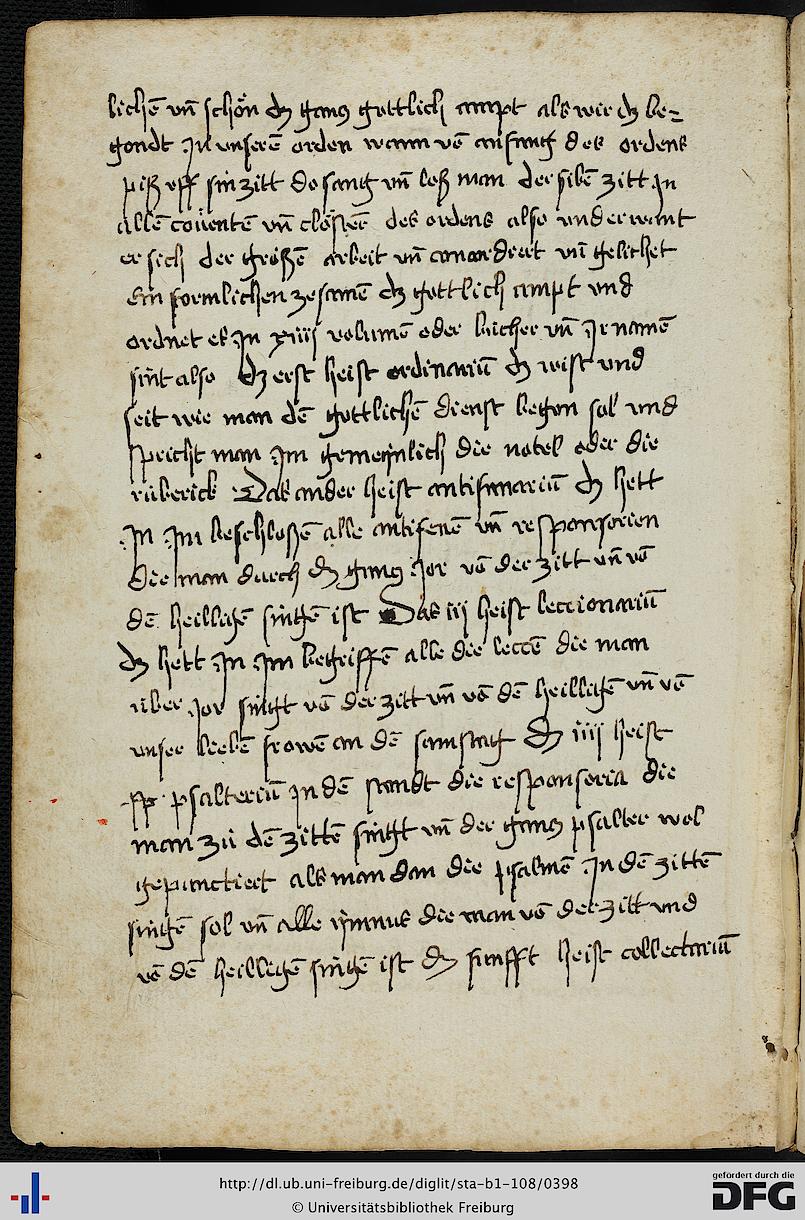 lichē vn̄ schön dz gancz gottlich ampt als wir dz be=
gondt Jn unserē orden wann vō anfang des ordens
piß uff sin zitt do sang vn̄ leß man der sibē zitt Jn
allē couentē vn̄ clöstrē des ordens also underwant
er sich der großē arbeit vn̄ concordiert vn̄ gelichet
ein formlichen zesamē dz gottlich ampt und
ordnet es Jn xiiij volumē oder bücher vn̄ Jr namē
sint also Dz erst heist ordinariū dz wist und
seit wie man dē gottlichē dienst began sol und
spricht man Jm gemeynlich die notel oder die
rüberick Das ander heist antifanariū dz hett
Jn Jm beschloßē alle antifenē vn̄ responsorien
die man durch dz gancz Jor vō der zitt vn̄ vō
dē heilligē singē ist Das iij heist leccionariū
dz hett Jn Jm begriffē alle die leccē die man
über Jor singt vō der zitt vn̄ vō dē heilligē vn̄ vō
unser liebē frowē an dē samstag Dz iiij heist
psalteriū Jn dē standt die responsoria die
man zü dē zittē singt vn̄ der gancz psalter wol
gepunctiert als man dan die psalmē Jn dē zittē
singē sol vn̄ alle ymnus die man vō der zitt und
vō dē heilligē singē ist dz funfft heist collectariū
http://dl.ub.uni-freiburg.de/diglit/sta-b1-108/0398
© Universitätsbibliothek Freiburg
gefördert durch die
DFG